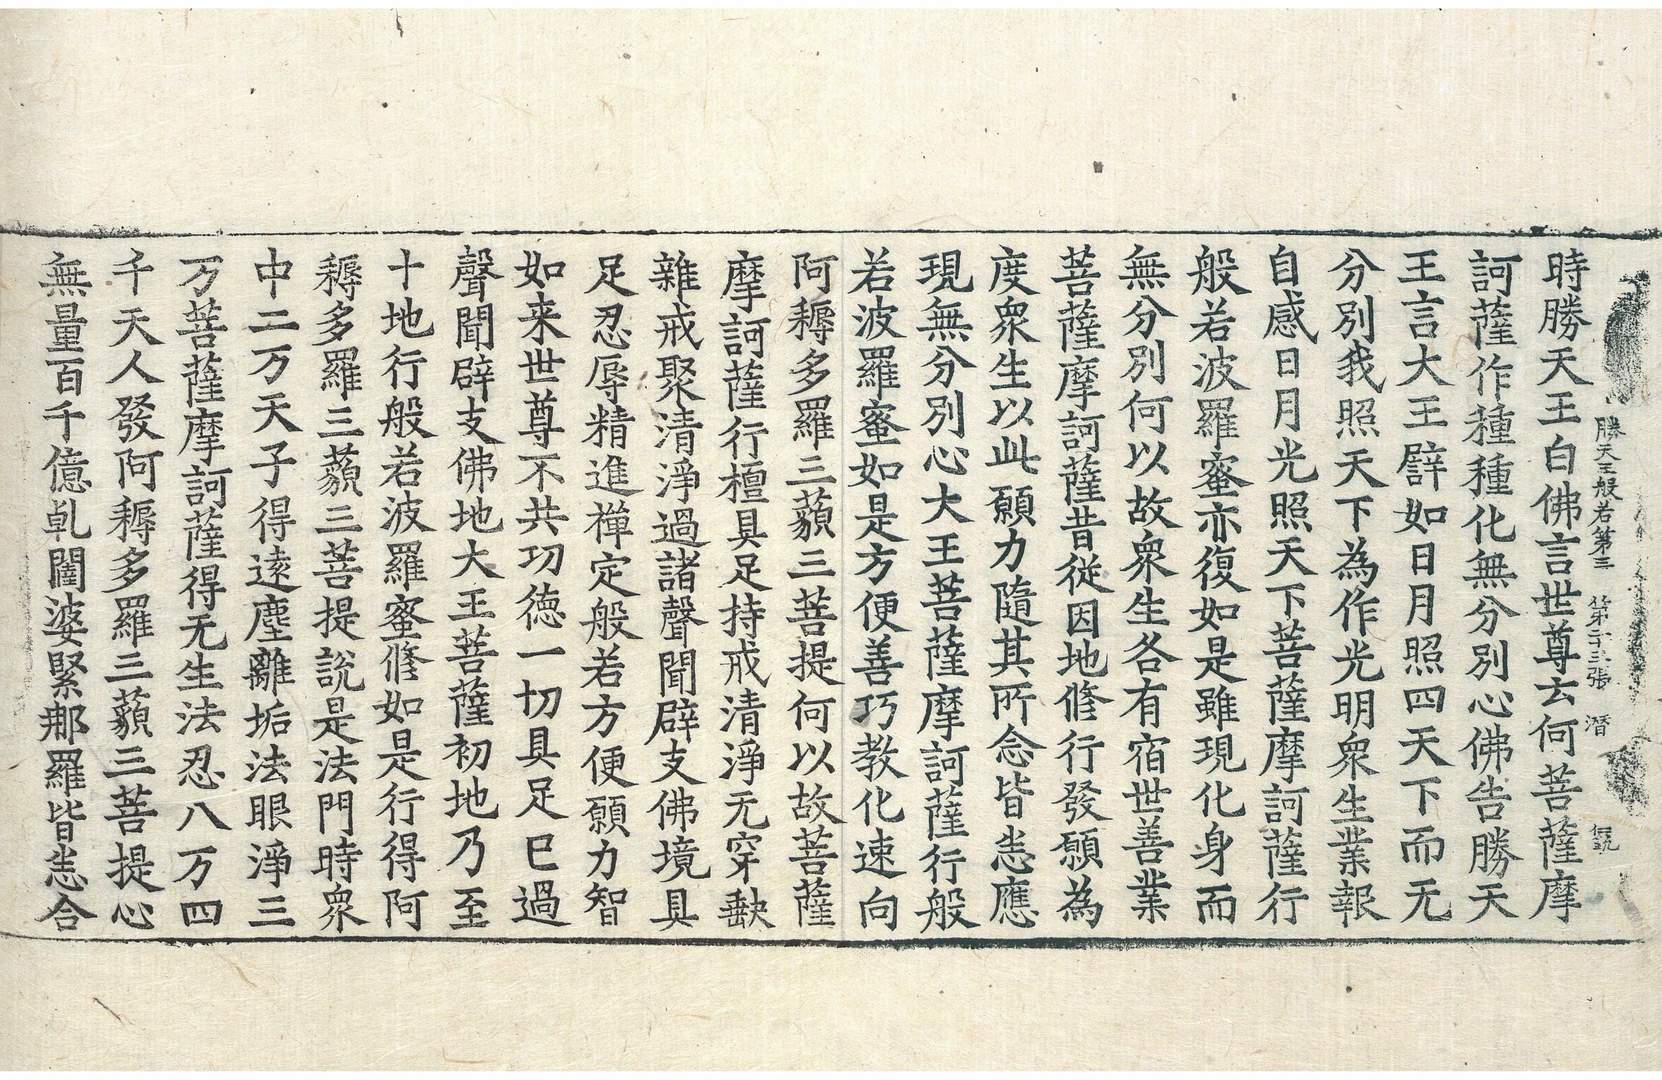 勝天王般若第三 第二十三張 潛
時勝天王白佛言世尊云何菩薩摩
訶薩作種種化無分別心佛告勝天
王言大王譬如日月照四天下而无
分別我照天下為作光明衆生業報
自感日月光照天下菩薩摩訶薩行
般若波羅蜜亦復如是雖現化身而
無分別何以故衆生各有宿世善業
菩薩摩訶薩昔從因地修行發願為
度衆生以此願力隨其所念皆悉應
現無分別心大王菩薩摩訶薩行般
若波羅蜜如是方便善巧教化速向
阿耨多羅三藐三菩提何以故菩薩
摩訶薩行檀具足持戒清淨无穿缺
雜戒聚清淨過諸聲聞辟支佛境具
足忍辱精進禪定般若方便願力智
如来世尊不共功德一切具足已過
聲聞辟支佛地大王菩薩初地乃至
十地行般若波羅蜜修如是行得阿
耨多羅三藐三菩提說是法門時衆
中二万天子得遠塵離垢法眼淨三
万菩薩摩訶薩得无生法忍八万四
千天人發阿耨多羅三藐三菩提心
無量百千億乹闥婆緊那羅皆悉合